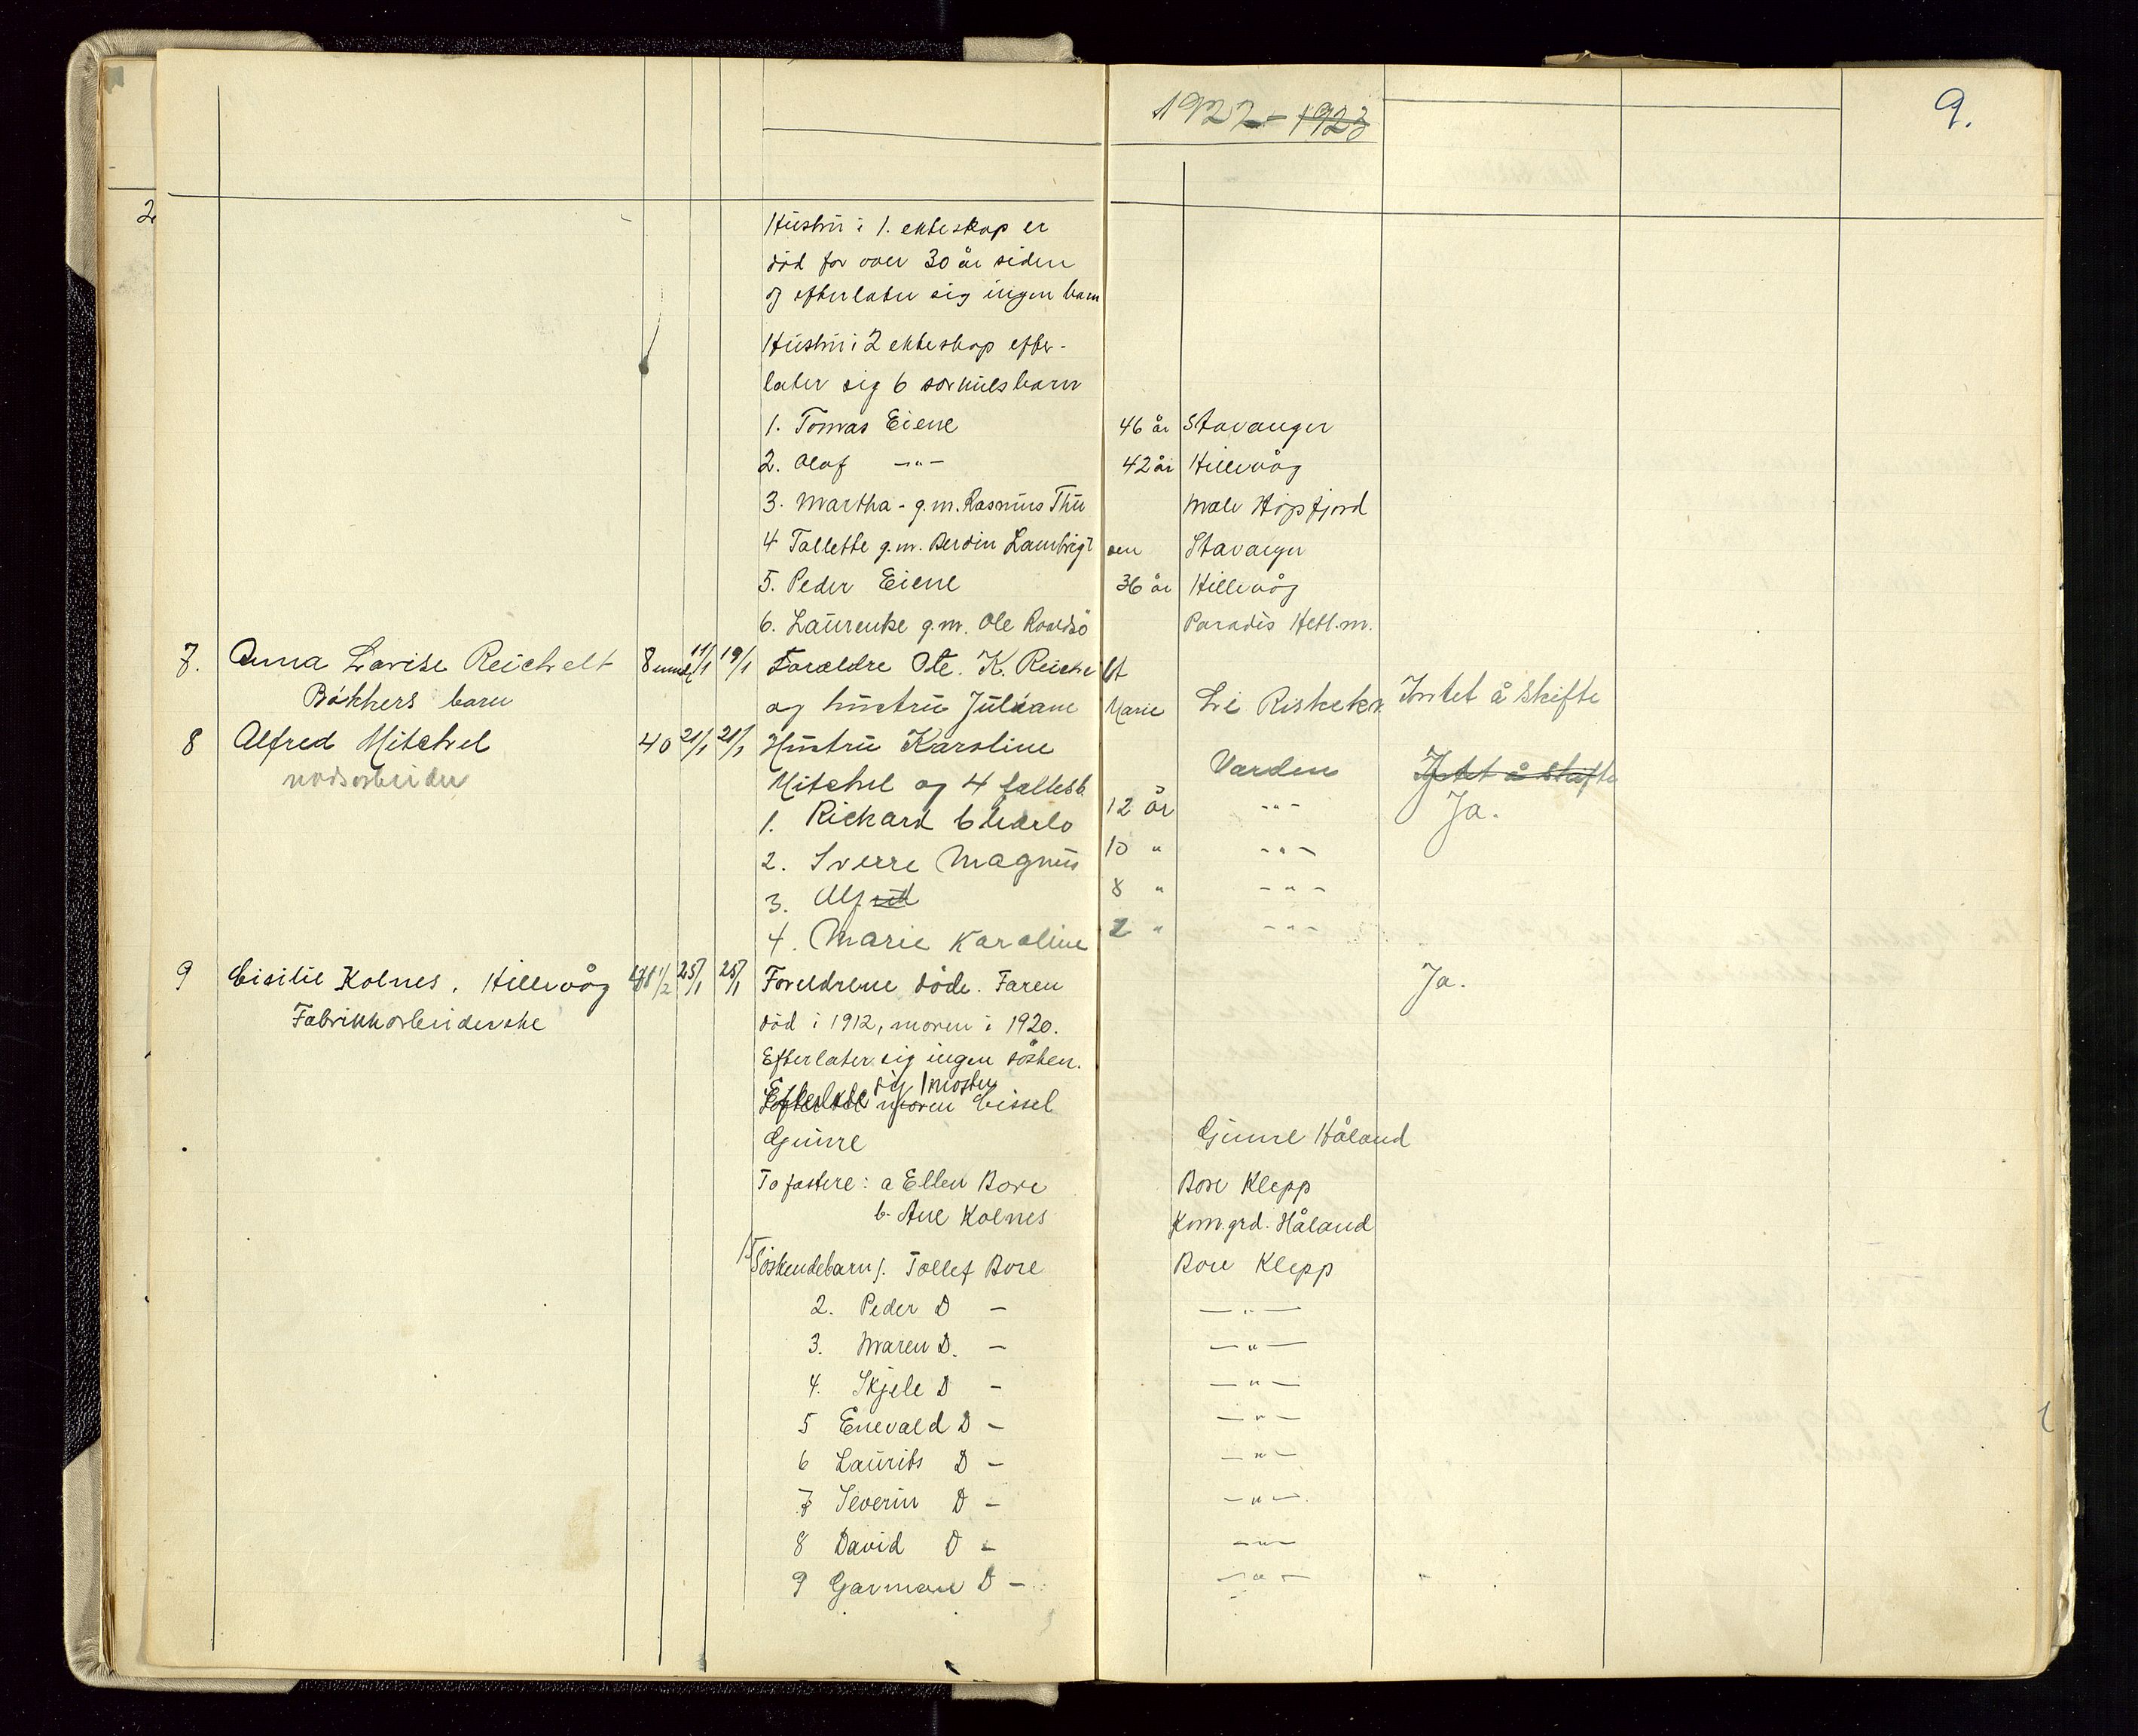 1922 - 1923
9.
2
Hustru i 1. ekteskap er
död for over 30 år siden
og efterlater sig ingen barn
Hustru i 2 ekteskap efter-
later sig 6 barn
1. Tomas Eiene 46 år Stavanger
2. Olaf -"- 42 år Hillevåg
3. Martha - g.m. Rasmus Thu Male Høgsfjord
4 Tallette g.m. Berdin Stavanger
5. Peder Eiene 36 år Hillevåg
6. Laurentse g.m. Ole Paradis Hetl.m.
7. Anna Lovise Reichelt 8 11/1 19/1 Foreldre Ote. K. Reichelt
Bökkers barn og hustru Juliane Marie Li Riskekv. Intet å skifte
8 Alfred Mitchel 40 21/1 21/1 Hustru Karoline Varden Intet å skifte
nodsarbeider Mitchel og 4 fellesb.
1. Rickard Charlo 12 år -"- Ja.
2. Sverre Magnus 10 " -"-
3. Alfred 8 " -"-
4. Marie Karoline 2 " -"-
9 Cisilie Kolnes, Hillevåg 25/1 25/1 Foreldrene döde. Faren Ja.
Fabrikkarbeiderske död i 1912, moren i 1920.
Efterlater sig ingen sösken.
sig 1 moster
Efterlate moren Cissel
Gunre Gunre Håland
To fastere: a Ellen Bore Bore Klepp
b. Ane Kolnes Korn.grd. Håland
Söskendebarn 1. Tollef Bore Bore Klepp
2. Peder D - -"-
3. Maren D. - -"-
4. Skjele D - -"-
5 Enevald D - -"-
6 Laurits D - -"-
7 Severin D - -"-
8 David D - -"-
9 Garman D - -"-